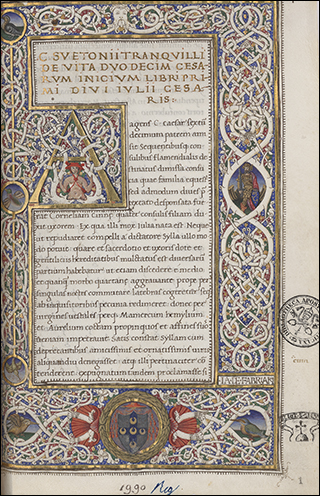 C. SVETONII TRANQVILLI
DE VITA DVODECIM CESA
RVM INICIVM LIBRI PRI
MI DIVI IVLII CESA
RIS
A
agens C. caesar sextū
decimum patrem ami
sit Sequentibusq con
sulibus flamendialis de
stinatus dimissa cossu
cia quae familia equest
sed admodum diues p
textato desponsata fue
rat Corneliam Cinnę quater consulis filiam du
xit uxorem Ex qua illi mox Iulia nata est Neque
ut repudiaret compelli a dictatore Sylla ullo mo
do potuit quare et sacerdotio et uxoris dote et
gentilitiis hereditatibus mulctatus est diuersarū
partium habebatur ut etiam discedere e medio
et quanq morbo quartanę aggrauante prope per
singulas noctes commutare latebras cogeretur seq
ab inquisitoribus pecunia redimeret donec per
uirgines uestales perq Mamercum hemylium
et Aurelium cottam propinquos et affines suos
ueniam impetrauit Satis constat Syllam cum
deprecantibus amicissimis et ornatissimis uiris
aliquandiu denegasset atq illi pertinaciter cō
tenderent expugnatum tandem proclamasse si
IAC. FABRIAN
com
1
1990 Reg